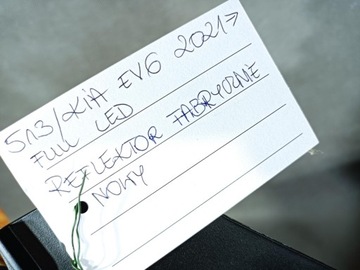 5113/KIA EV6 2021>
FULL LED
REFLEKTOR FABRYCZNIE
NOWY